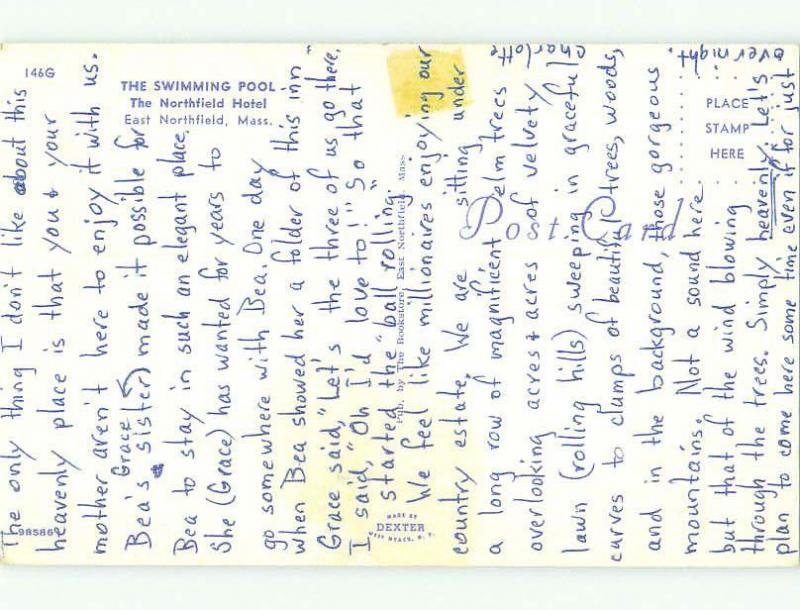 146G
THE SWIMMING POOL
The Northfield Hotel
East Northfield, Mass.
PLACE
STAMP
HERE
Post Card
Pub. by The Bookstore, East Northfield, Mass.
MADE BY
DEXTER
WEST NYACK, N. Y.
98586
The only thing I don't like about this
heavenly place is that you & your
mother aren't here to enjoy it with us.
Grace
Bea's sister) made it possible for
Bea to stay in such an elegant place.
She (Grace) has wanted for years to
go somewhere with Bea. One day
when Bea showed her a folder of this inn"
Grace said, "Let's the three of us go there.
I said, "Oh I'd love to!" So that
started the "ball rolling."
We feel like millionaires enjoying our
country estate. We are sitting under
a long row of magnificent elm trees
overlooking acres & acres of velvety
lawn (rolling hills) sweeping in graceful
curves to clumps of beautiful trees, woods,
and in the background, those gorgeous
mountains. Not a sound here
but that of the wind blowing
through the trees. Simply heavenly. Let's
plan to come here some time even if for just
overnight.
Charlotte